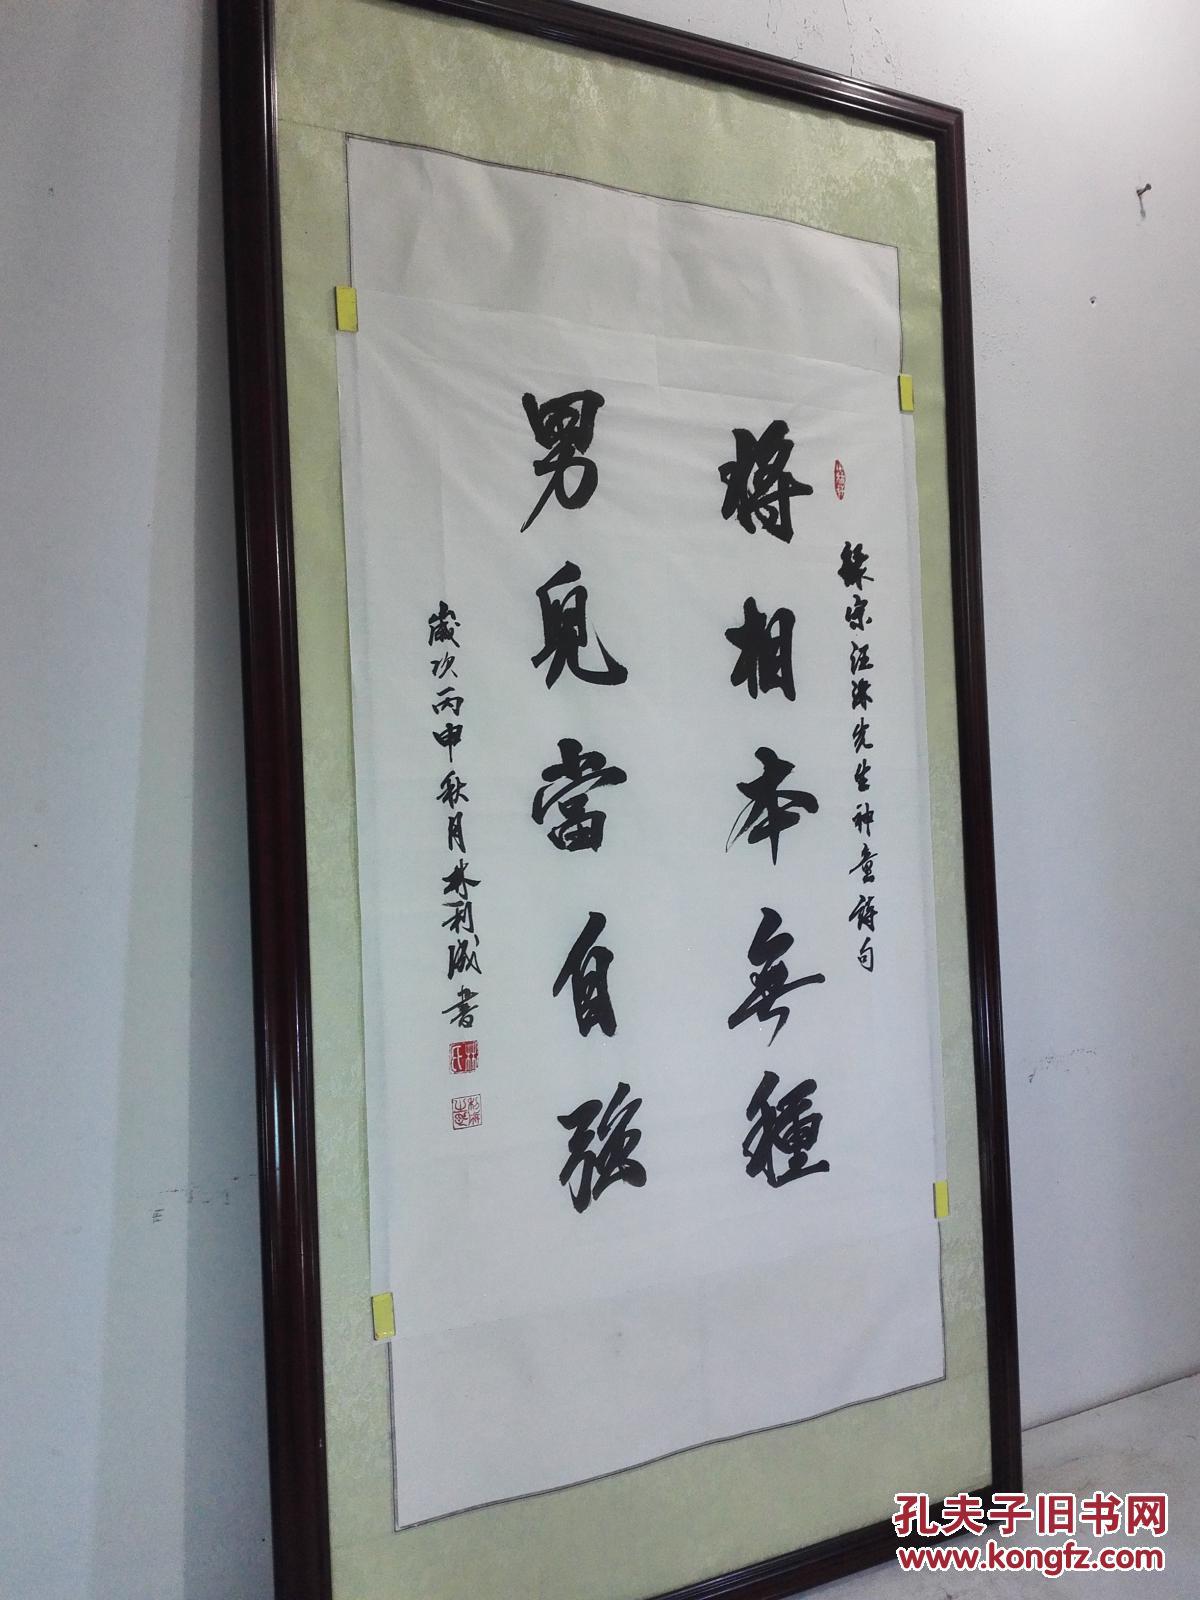 錄宋汪洙先生神童詩句
將相本無種
男兒當自強
歲次丙申秋月林利滅書
林氏
孔夫子旧书网
www.kongfz.com